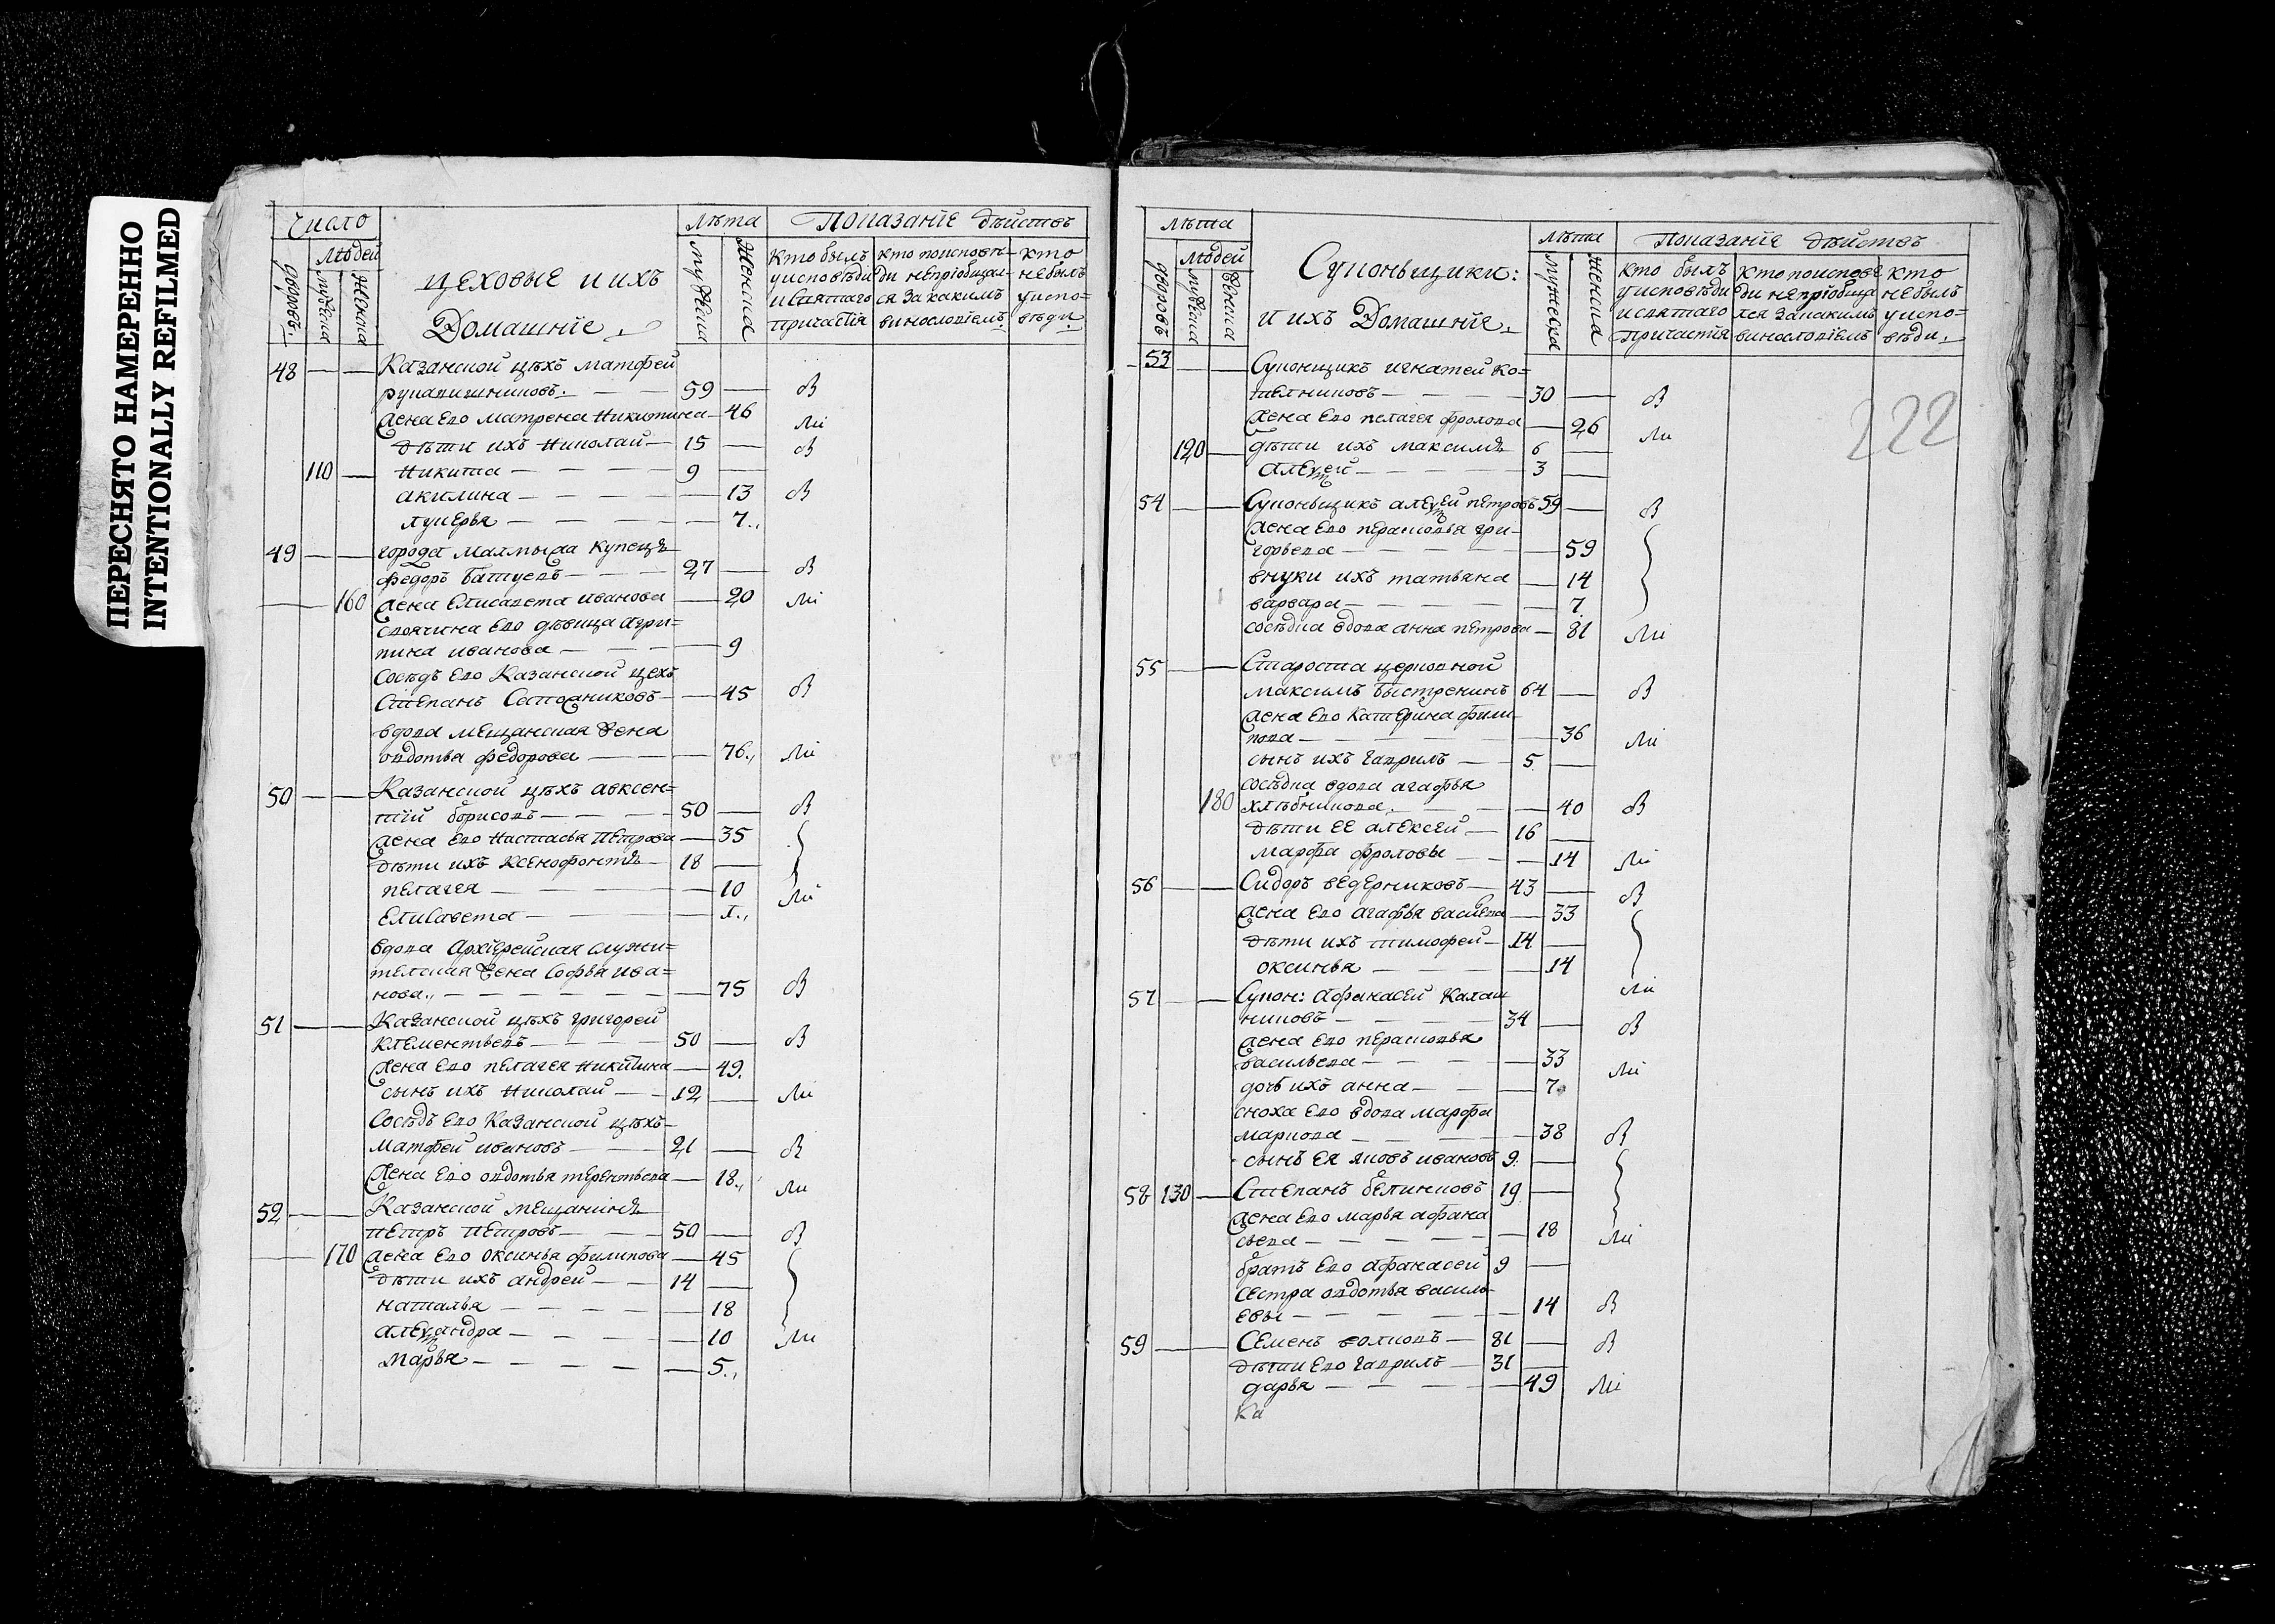 ПЕРЕСНЯТО НАМЕРЕННО
INTENTIONALLY REFILMED
Число
Людей
дворовъ
мужеска
женска
цеховые и ихъ
Домашніе
лѣта
мужеска
женска
Показаніе дѣйствъ
кто былъ
у исповѣди
и святаго
причастія
кто по исповѣ-
ди не пріобщал-
ся за какимъ
винословіемъ
кто
не былъ
у испо-
вѣди
48 — — Казанской цѣхъ матфей
рукавишниковъ — 59 — в
жена Ево матрена Никитина — 46 ли
дѣти ихъ Николай — 15 — в
110 — Никита — 9 —
акилина — 13 в
лукерья — 7
49 — — города Малмыжа купецъ
федоръ батуевъ — 27 — в
— 160 жена Елисавета иванова — 20 ли
своячина Ево дѣвица агри-
пина иванова — 9
Сосѣдъ Ево Казанской цехъ
Степанъ — 45 в
вдова мещанская жена
овдотья федорова — 76 ли
50 — — Казанской цѣхъ авксен-
тій борисовъ — 50 — в
жена Ево Настасья Петрова — 35
дѣти ихъ ксенофонтъ — 18 —
пелагея — 10 ли
Елисавета — 1
вдова Архіерейская служи-
телская жена Софья ива-
нова — 75 в
51 — — Казанской цѣхъ григорей
клементьевъ — 50 — в
жена Ево пелагея никитина — 49
сынъ ихъ Николай — 12 — ли
Сосѣдъ Ево Казанской цѣхъ
матфей ивановъ — 21 — в
жена Ево овдотья терентьева — 18 ли
52 — — Казанской мещанинъ
петръ Петровъ — 50 — в
— 170 жена Ево оксинья филипова — 45
дѣти ихъ андрей — 14 —
наталья — 18
александра — 10 ли
марья — 5
лѣта
Людей
дворовъ
мужеска
женска
Суконьщики:
и ихъ Домашніе
лѣта
мужеска
женска
Показаніе дѣйствъ
кто былъ
у исповѣди
и святаго
причастія
кто по исповѣ
ди не пріобща
лся за какимъ
винословіемъ
кто
не былъ
у испо-
вѣди
222
53 — — Суконщикъ игнатей ко-
телниковъ — 30 — в
жена Ево пелагея фролова — 26 ли
120 — дѣти ихъ максимъ 6 —
алексей — 3 —
54 — — Суконьщикъ алексей петровъ 59 — в
жена Ево перасковья гри-
горьева — 59
внуки ихъ татьяна — 14
варвара — 7
сосѣдка вдова анна петрова — 81 ли
55 — — Староста церковной
максимъ быстренинъ 64 — в
жена Ево катерина фили-
пова — 36 ли
сынъ ихъ гаврилъ — 5 —
180 сосѣдка вдова агафья
хлѣбникова — 40 в
дѣти ее алексей — 16 —
марфа фроловы — 14 ли
56 — — Сидоръ ведерниковъ — 43 — в
жена Ево агафья васильева — 33
дѣти ихъ тимофей — 14 —
оксинья — 14 ли
57 — — Сукон: афанасей калаш
никовъ — 34 — в
жена Ево перасковья
васильева — 33 ли
дочь ихъ анна — 7
сноха Ево вдова марфа
маркова — 38 в
сынъ ея яковъ ивановъ 9 —
58 130 — Степанъ белинковъ 19 —
жена Ево марья афана
сьева — 18 ли
братъ Ево афанасей 9 —
сестра овдотья василь-
евы — 14 в
59 — — Семенъ волковъ — 81 — в
дѣти Ево гаврилъ — 31 —
дарья — 49 ли
Ка